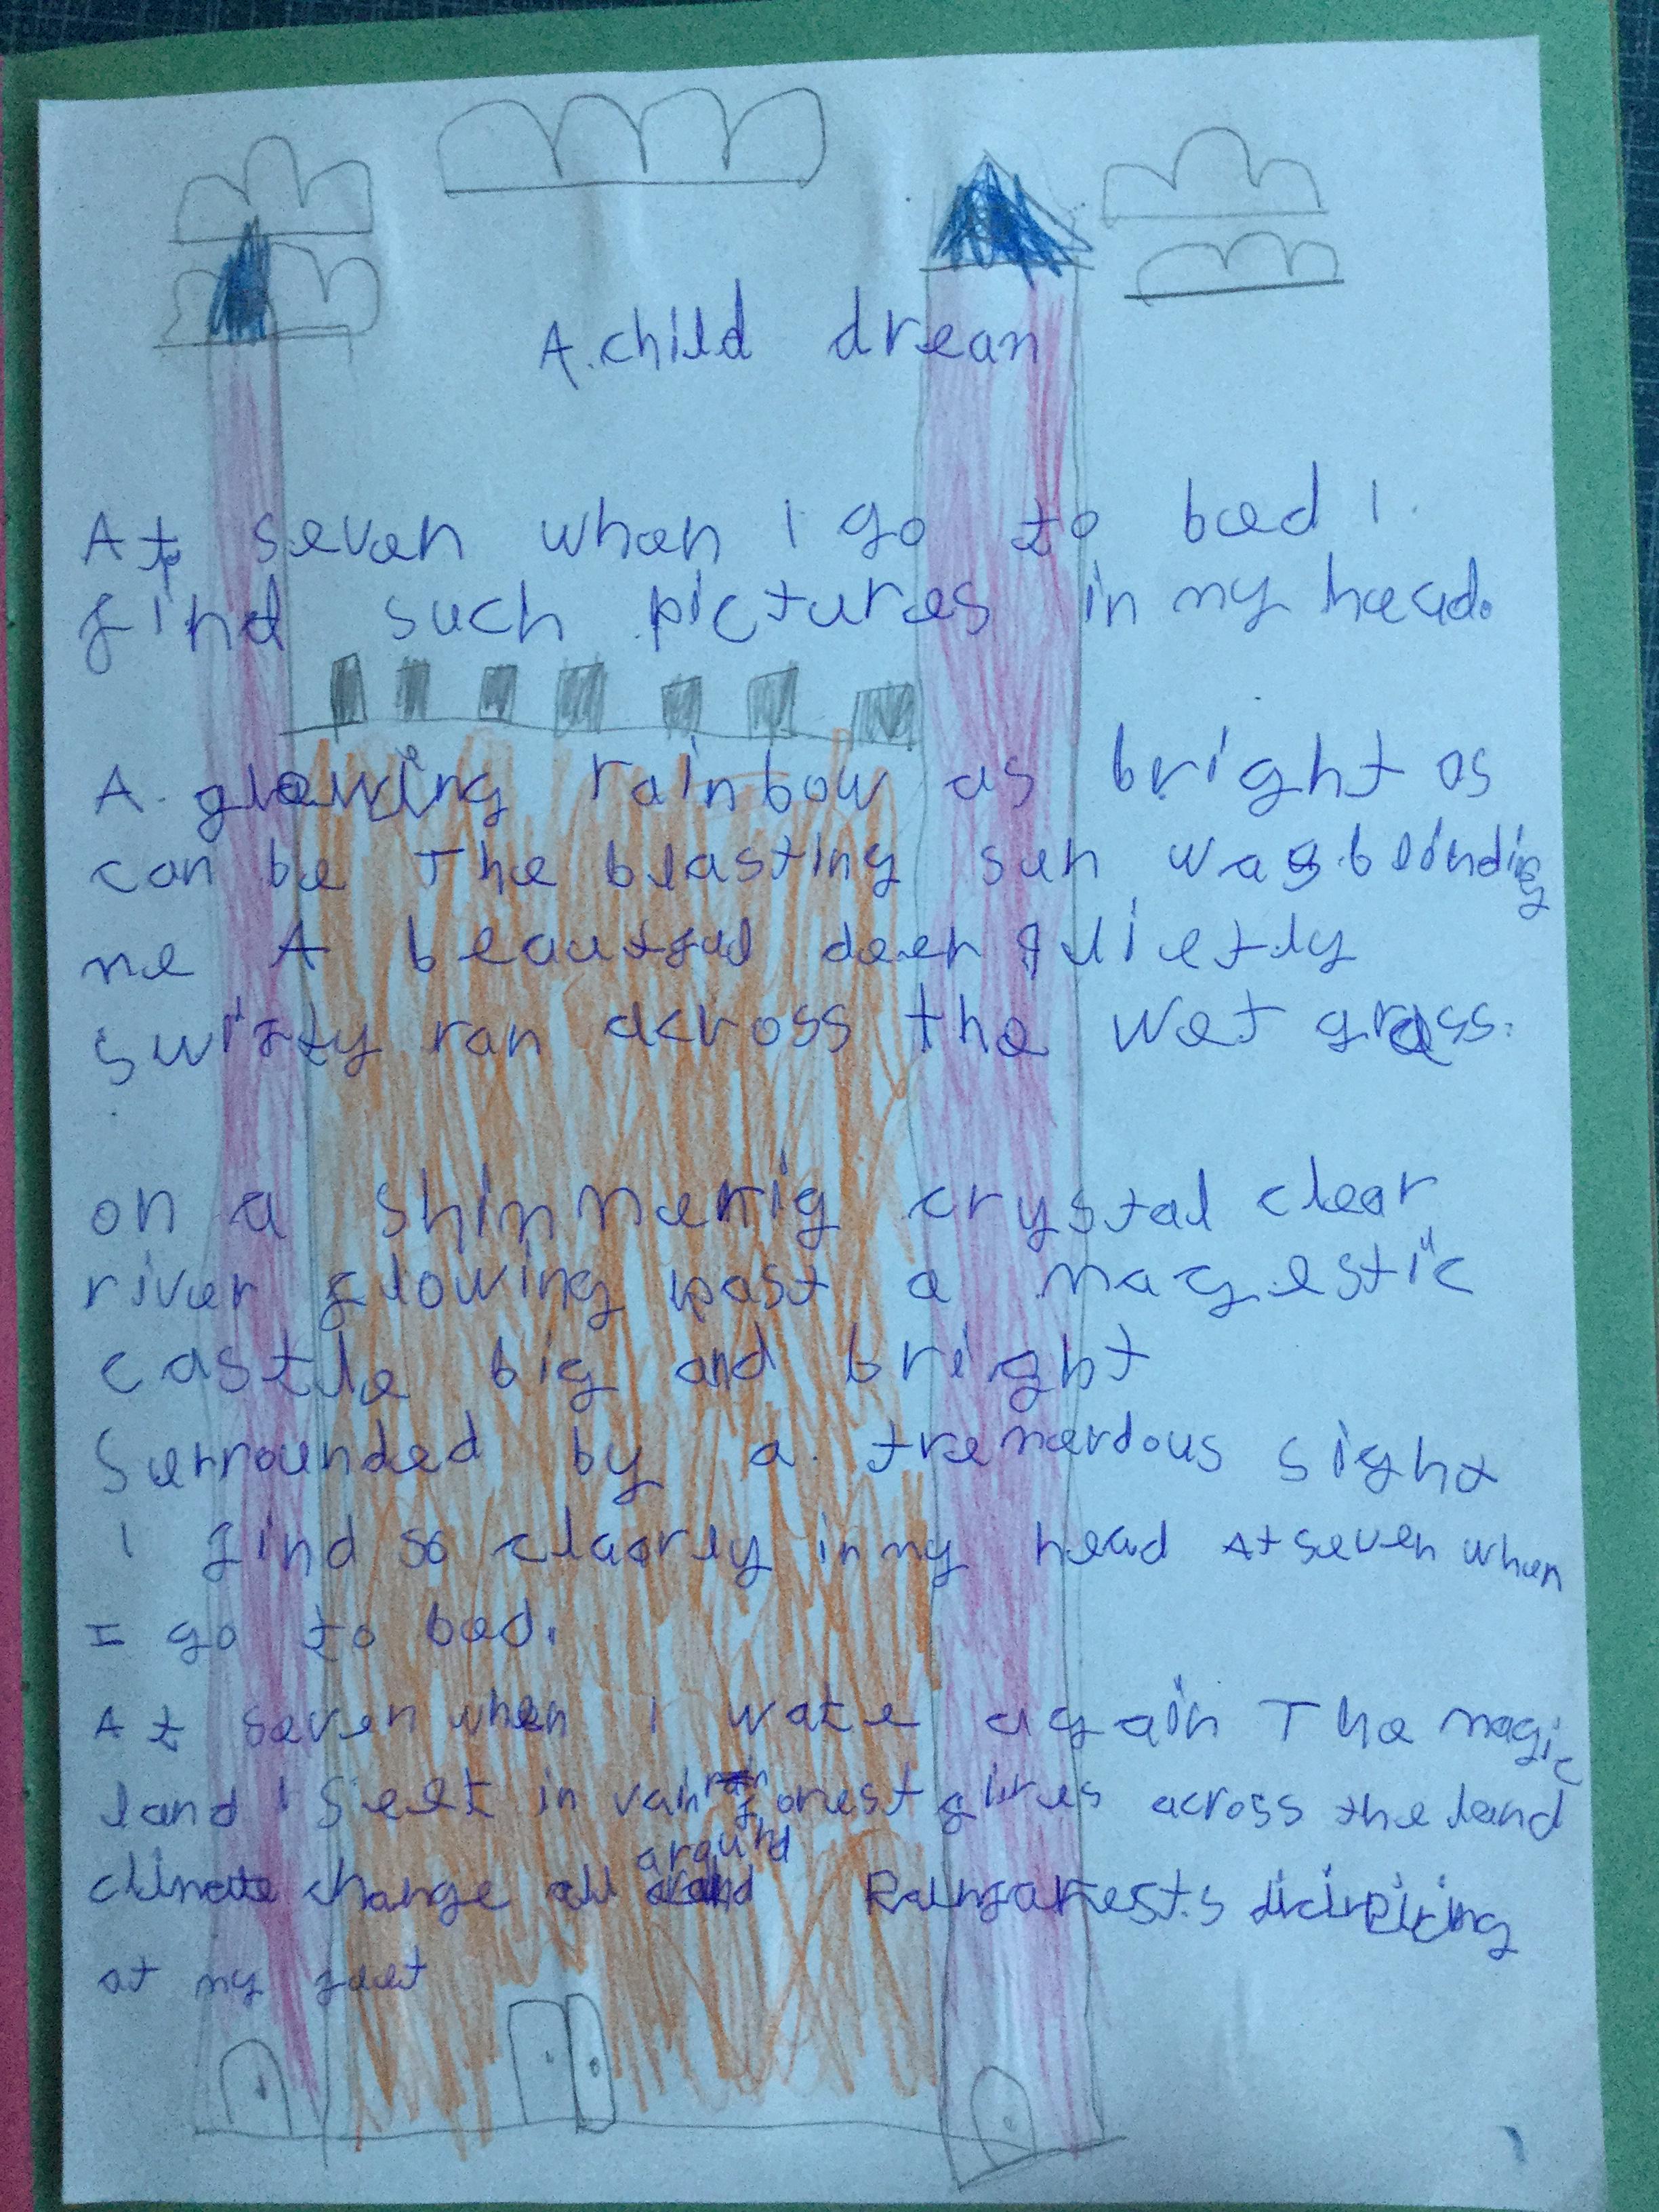 A child drean
At seven when I go to bed I
find such pictures in my head.
A glowing rainbow as bright as
can be The blasting sun was blinding
me A beautful deer quietly
swiftly ran across the wet grass.
on a shinmering crystal clear
river flowing past a magestic
castle big and bright
Surrounded by a tremendous sight
I find so clearly in my head At seven when
I go to bed.
At seven when I wake again The magic
land I seek in vain forest fires across the land
climate change all around Rainforests
at my feet